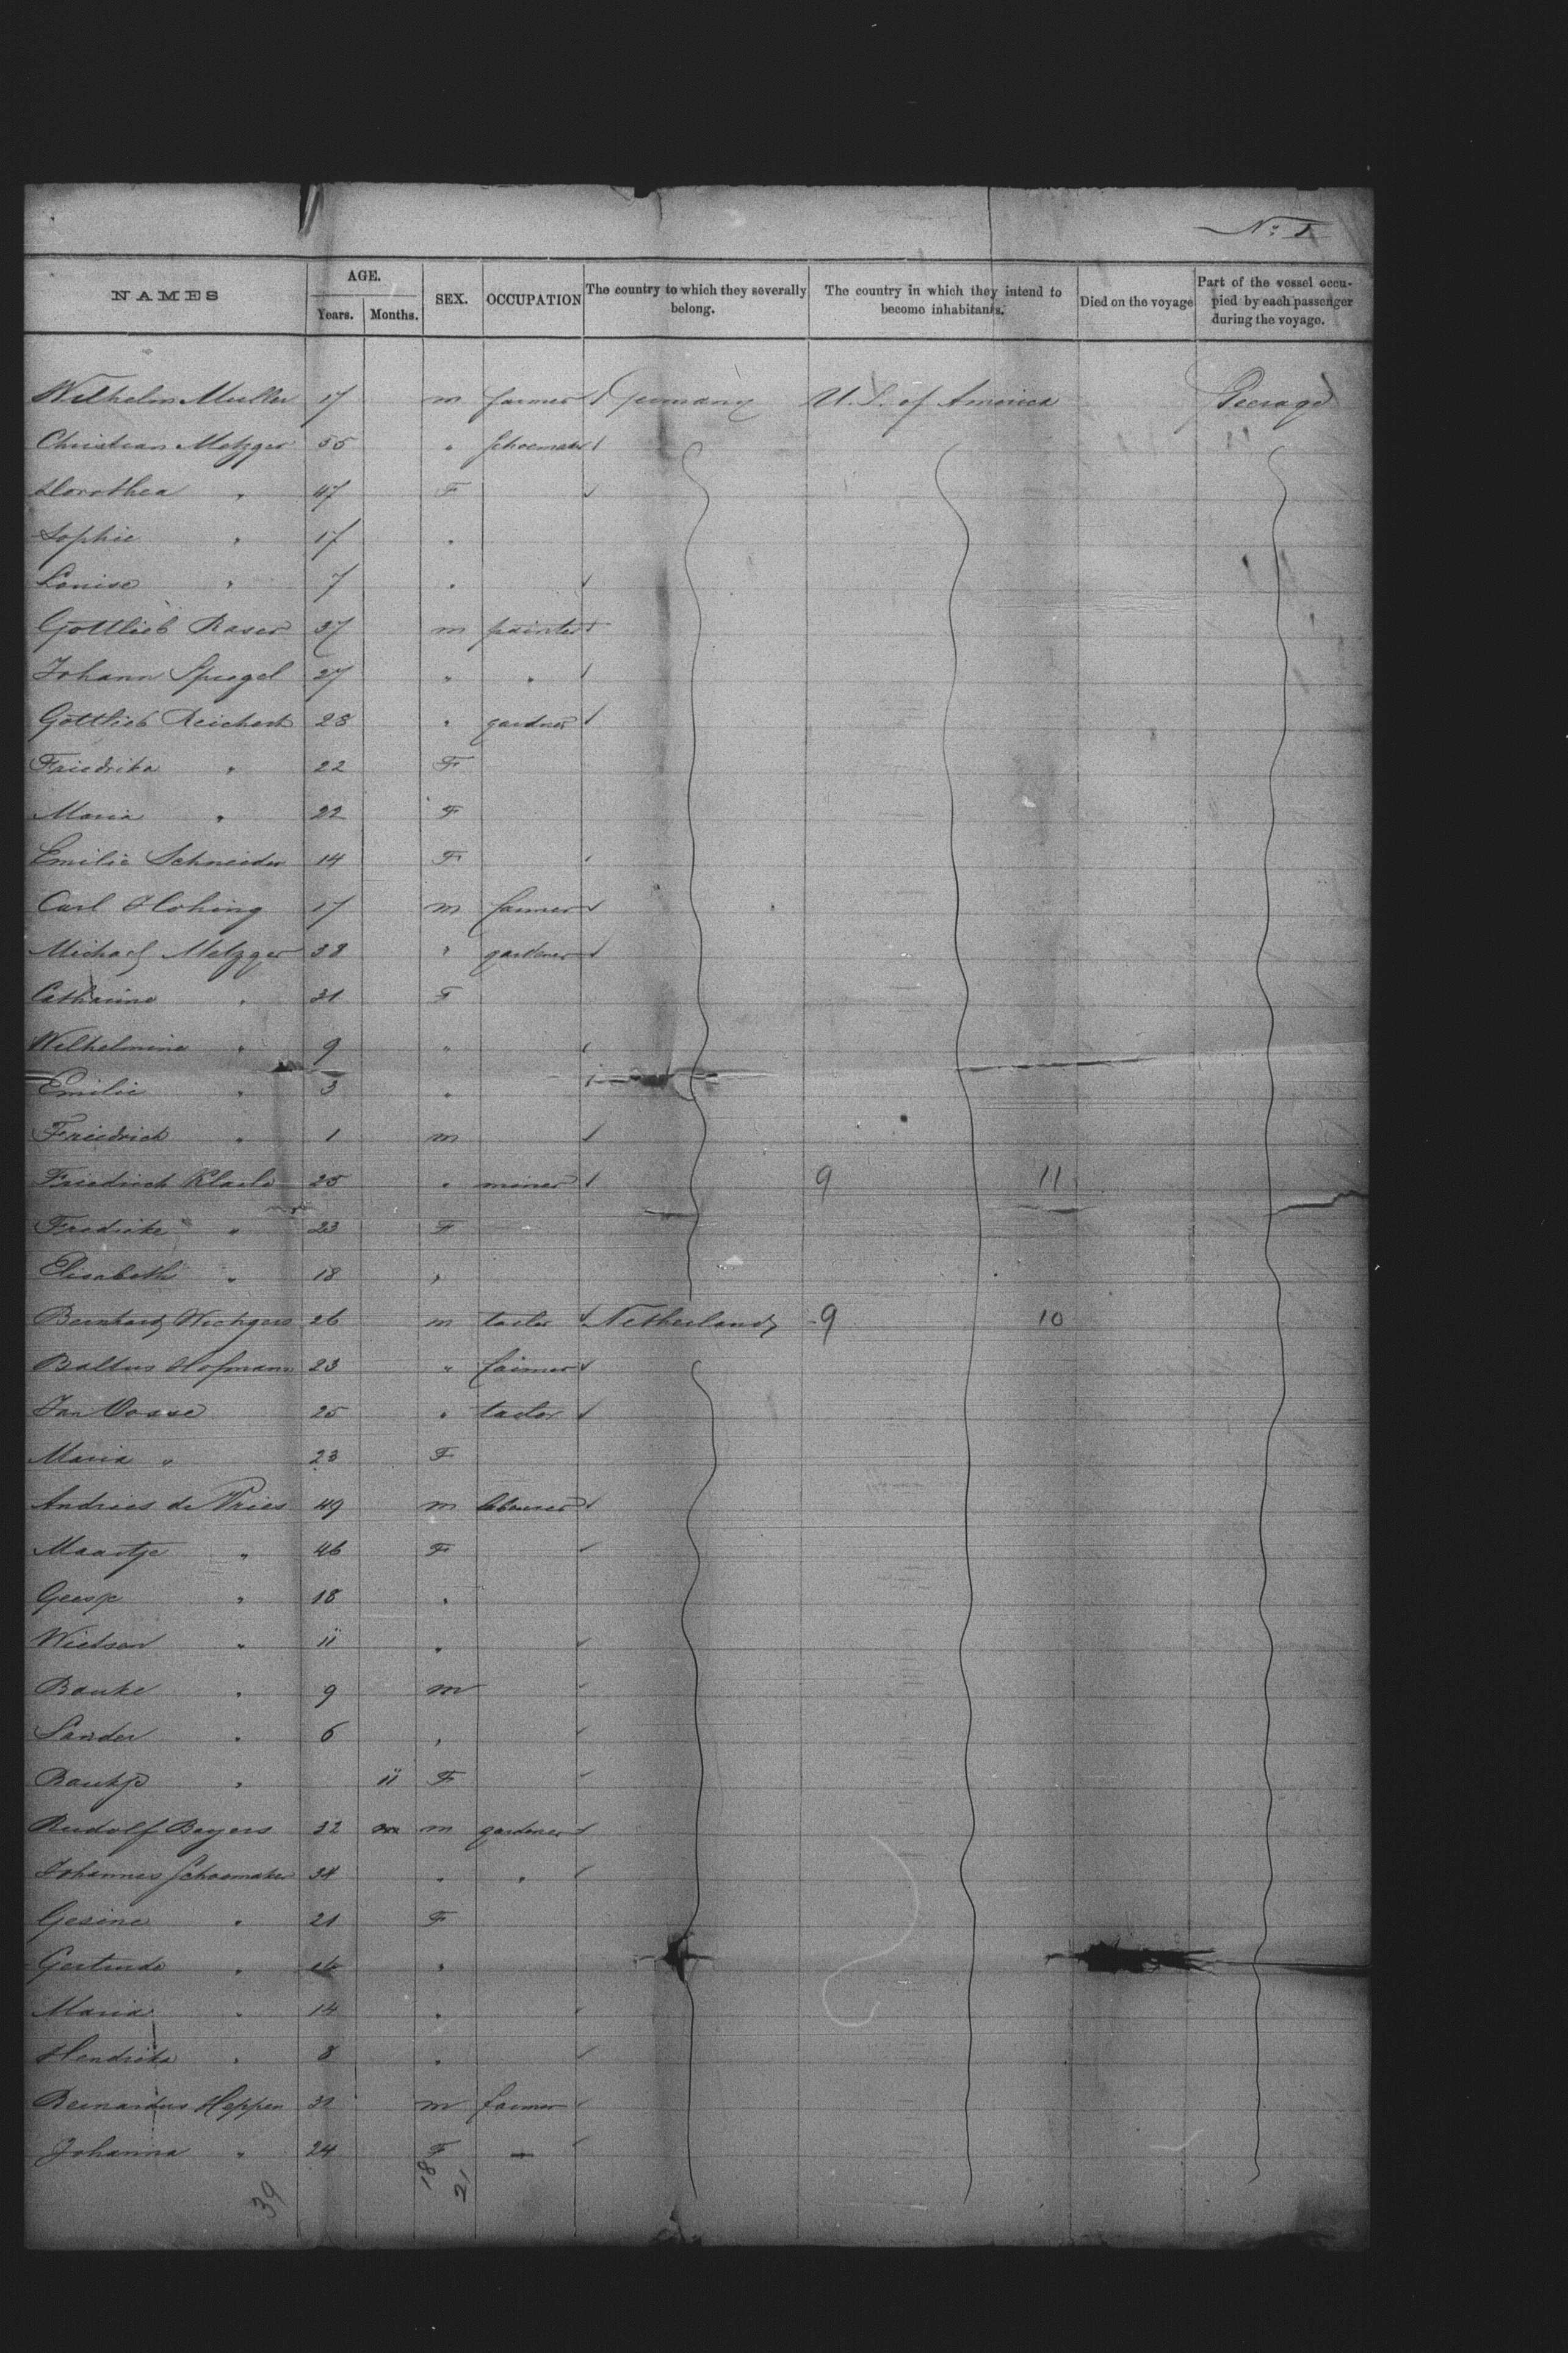 No. 1
NAMES AGE. Years. Months. SEX. OCCUPATION The country to which they severally belong. The country in which they intend to become inhabitants. Died on the voyage Part of the vessel occupied by each passenger during the voyage.
Wilhelm Muller 17 m farmer Germany U.S. of America Steerage
Christian Metzger 55 " schoemaker
Dorothea " 47 F
Sophie " 17 "
Louise " 7 "
Gottlieb Raser 37 m painter
Johann Spiegel 27 " "
Gottlieb Reichert 28 " gardner
Friedrika " 22 F
Maria " 22 F
Emilie Schneider 14 F
Carl 17 m farmer
Michael Metzger 38 " gardener
Catharine " 31 F
Wilhelmine " 9 "
Emilie " 3 "
Friedrich " 1 m
Friedrich Klaele 25 " miner 9 11
Fredrike " 23 F
Elisabeth " 18 "
Bernhard Wichgers 26 m tailor Netherlands 9 10
Baltus Hofmann 23 " farmer
Jan Vosse 25 " tailor
Maria " 23 F
Andries de Vries 49 m labourer
Maartje " 46 F
Geesje " 18 "
" 11 "
Bauke " 9 m
Sander " 6 "
Baukje " 11 F
Rudolf Beyers 32 m m gardener
Johannes Schoemaker 34 " "
Gesine " 21 F
Gertrude " 16 "
Maria " 14 "
Hendrika " 8 "
Bernardus Heppen 31 m farmer
Johanna " 24 F —
39 18 21